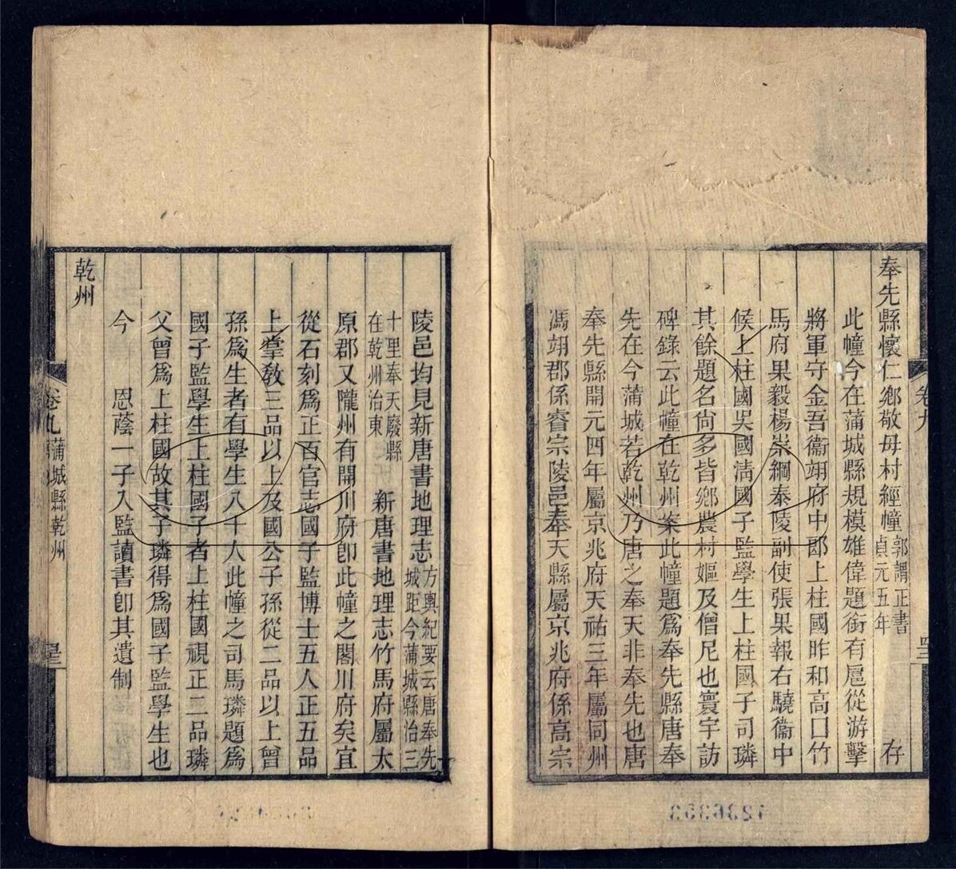 奉先縣懷仁鄉敬母村經幢 郭謂正書 貞元五年 存
此幢今在蒲城縣規模雄偉題銜有扈從游擊
將軍守金吾衞翊府中郎上柱國昨和高口竹
馬府果毅楊崇綱泰陵副使張果報右驍衞中
候上柱國吳國清國子監學生上柱國子司璘
其餘題名尙多皆鄉農村嫗及僧尼也寰宇訪
碑錄云此幢在乾州案此幢題爲奉先縣唐奉
先在今蒲城若乾州乃唐之奉天非奉先也唐
奉先縣開元四年屬京兆府天祐三年屬同州
馮翊郡係睿宗陵邑奉天縣屬京兆府係高宗
卷九
陵邑均見新唐書地理志 方輿紀要云唐奉先城距今蒲城縣治三
十里奉天廢縣在乾州治東 新唐書地理志竹馬府屬太
原郡又隴州有開川府卽此幢之閣川府矣宜
從石刻爲正百官志國子監博士五人正五品
上掌敎三品以上及國公子孫從二品以上曾
孫爲生者有學生八十人此幢之司馬璘題爲
國子監學生上柱國子者上柱國視正二品璘
父曾爲上柱國故其子璘得爲國子監學生也
今 恩蔭一子入監讀書卽其遺制
乾州
卷九 蒲城縣乾州